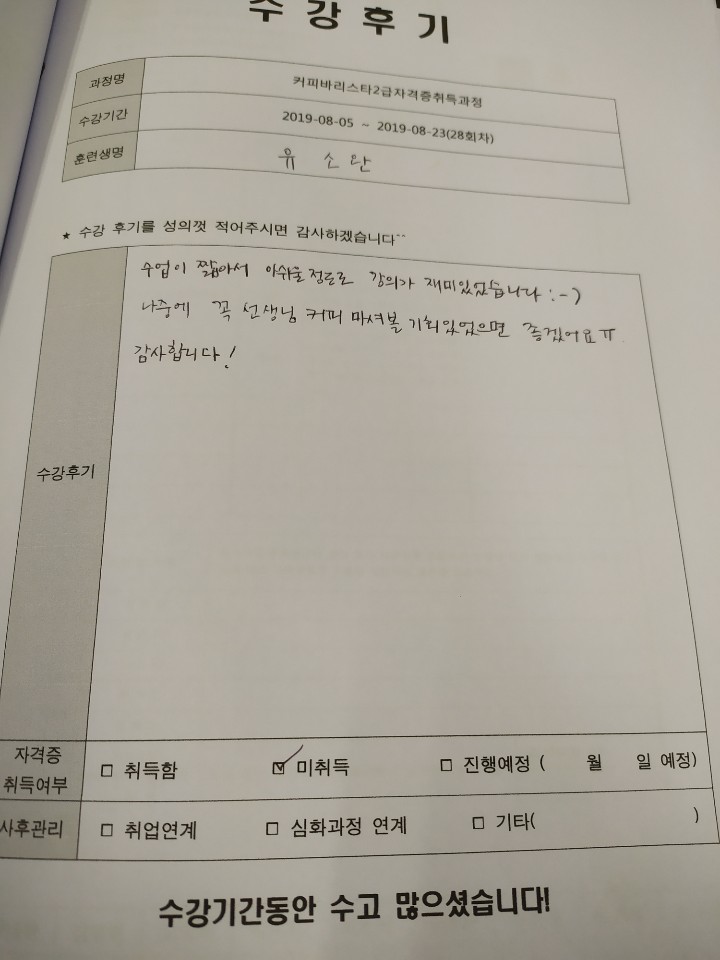 수강후기
과정명 커피바리스타2급자격증취득과정
수강기간 2019-08-05 ~ 2019-08-23(28회차)
훈련생명 유소란
★ 수강 후기를 성의껏 적어주시면 감사하겠습니다^^
수업이 짧아서 아쉬울정도로 강의가 재미있었습니다 :-)
나중에 꼭 선생님 커피 마셔볼 기회있었으면 좋겠어요ㅠ
감사합니다!
수강후기
자격증 취득여부 □ 취득함 ☑ 미취득 □ 진행예정 ( 월 일 예정)
사후관리 □ 취업연계 □ 심화과정 연계 □ 기타( )
수강기간동안 수고 많으셨습니다!